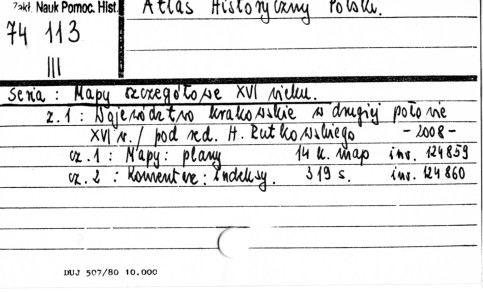 Zakł. Nauk Pomoc. Hist.
Atlas Historyczny Polski.
74 113
III
Seria : Mapy szczegółowe XVI wieku.
z. 1 : Województwo krakowskie w drugiej połowie
XVI w. / pod red. H. Rutkowskiego - 2008 -
cz. 1 : Mapy ; plany 14 k. map inw. 124859
cz. 2 : Komentarz ; Indeksy. 319 s. inw. 124860
DUJ 507/80 10.000